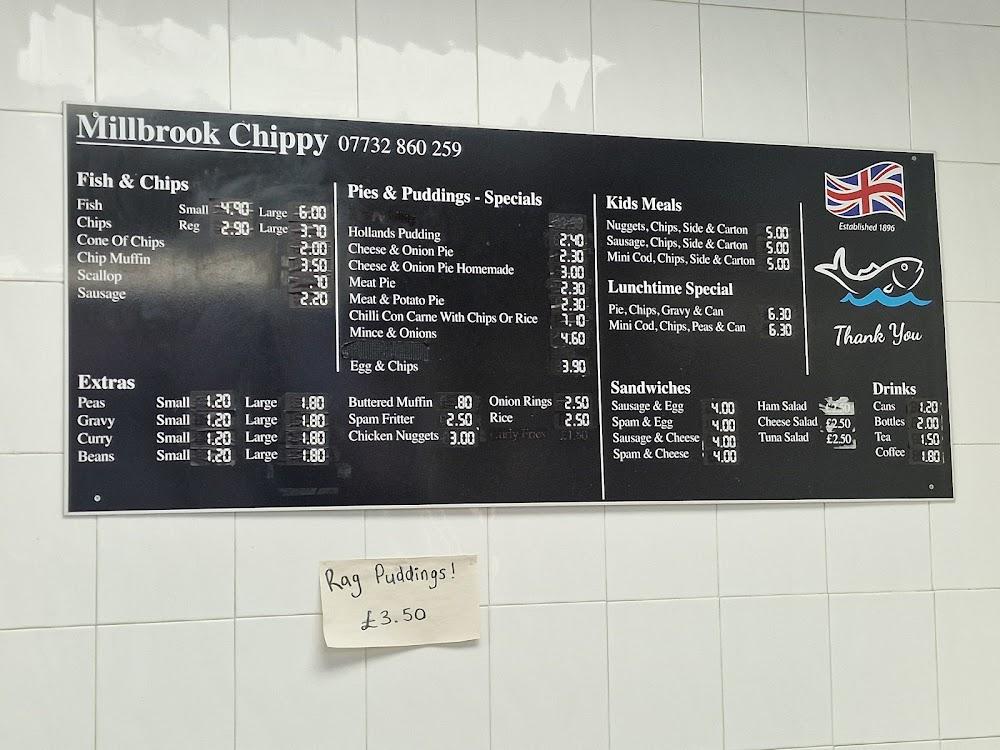 Millbrook Chippy 07732 860 259
Fish & Chips
Fish Small 4.90 Large 6.00
Chips Reg 2.90 Large 3.70
Cone Of Chips 2.00
Chip Muffin 3.50
Scallop .70
Sausage 2.20
Extras
Peas Small 1.20 Large 1.80
Gravy Small 1.20 Large 1.80
Curry Small 1.20 Large 1.80
Beans Small 1.20 Large 1.80
Pies & Puddings - Specials
Hollands Pudding 2.40
Cheese & Onion Pie 2.30
Cheese & Onion Pie Homemade 3.00
Meat Pie 2.30
Meat & Potato Pie 2.30
Chilli Con Carne With Chips Or Rice 7.10
Mince & Onions 4.60
Egg & Chips 3.90
Buttered Muffin .80
Spam Fritter 2.50
Chicken Nuggets 3.00
Onion Rings 2.50
Rice 2.50
Curly Fries £1.50
Kids Meals
Nuggets, Chips, Side & Carton 5.00
Sausage, Chips, Side & Carton 5.00
Mini Cod, Chips, Side & Carton 5.00
Lunchtime Special
Pie, Chips, Gravy & Can 6.30
Mini Cod, Chips, Peas & Can 6.30
Sandwiches
Sausage & Egg 4.00
Spam & Egg 4.00
Sausage & Cheese 4.00
Spam & Cheese 4.00
Ham Salad
Cheese Salad £2.50
Tuna Salad £2.50
Drinks
Cans 1.20
Bottles 2.00
Tea 1.50
Coffee 1.80
Established 1896
Thank You
Rag Puddings!
£3.50